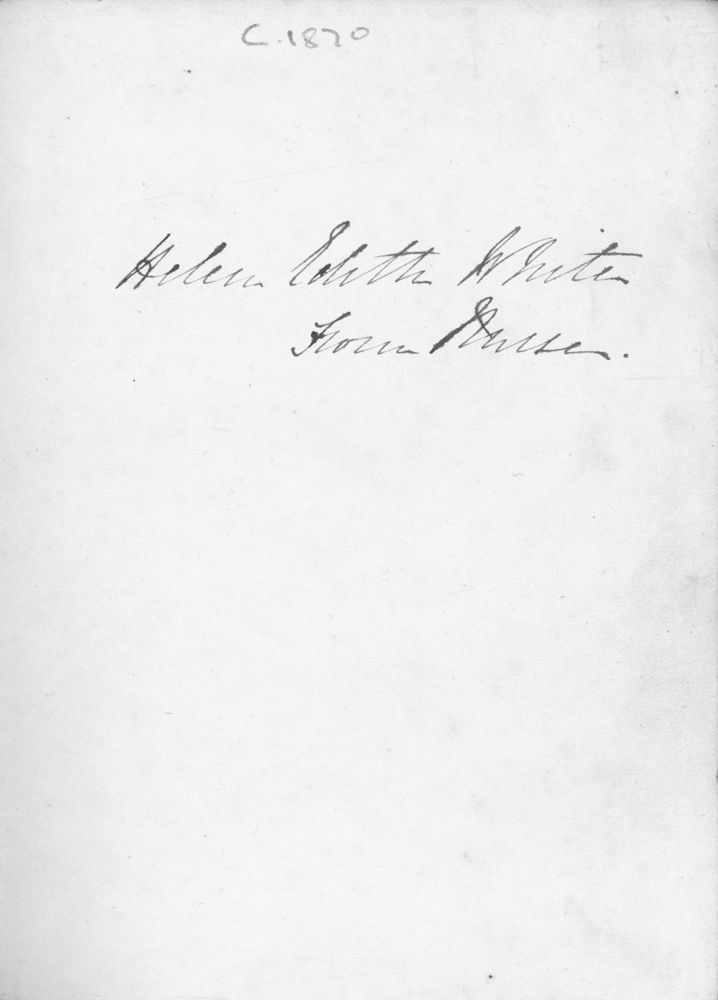 C.1870
Helen Edith White
From Nurse.